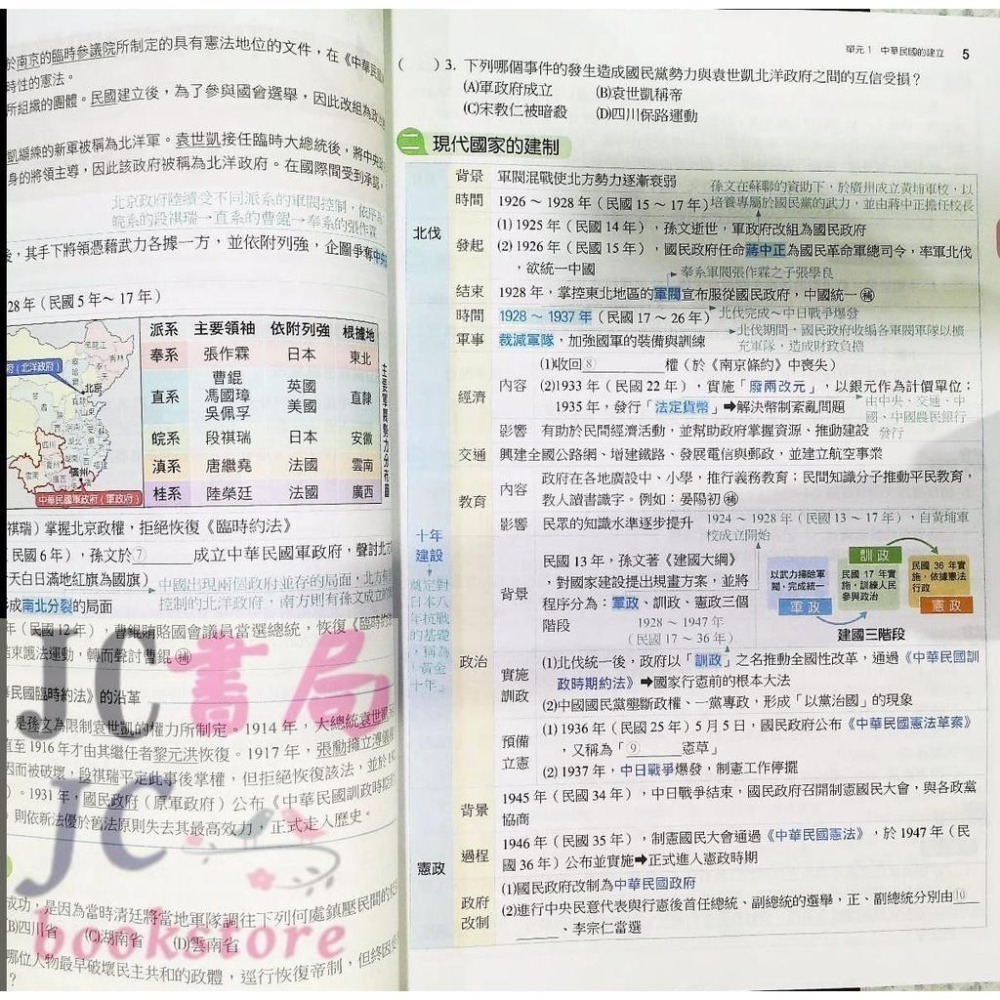 於南京的臨時參議院所制定的具有憲法地位的文件，在《中華民
時性的憲法。
所組織的團體。民國建立後，為了參與國會選舉，因此改組為政
凱編練的新軍被稱為北洋軍。袁世凱接任臨時大總統後，將中央
身的將領主導，因此該政府被稱為北洋政府。在國際間受到承認，
北京政府陸續受不同派系的軍閥控制，依序為
皖系的段祺瑞→直系的曹錕→奉系的張作霖
後，其手下將領憑藉武力各據一方，並依附列強，企圖爭奪中央
28年（民國5年～17年）
府（北洋政府）
北京
廣州
中華民國軍政府（軍政府）
派系 主要領袖 依附列強 根據地
奉系 張作霖 日本 東北
直系 曹錕 馮國璋 吳佩孚 英國 美國 直隸
皖系 段祺瑞 日本 安徽
滇系 唐繼堯 法國 雲南
桂系 陸榮廷 法國 廣西
主要軍閥勢力分布圖
祺瑞）掌握北京政權，拒絕恢復《臨時約法》
民國6年），孫文於⑦ 成立中華民國軍政府，聲討北
青天白日滿地紅旗為國旗）
中國出現兩個政府並存的局面，北方有
控制的北洋政府，南方則有孫文成立的
形成南北分裂的局面
年（民國12年），曹錕賄賂國會議員當選總統，恢復《臨時約
結束護法運動，轉而聲討曹錕㊙
華民國臨時約法》的沿革
，是孫文為限制袁世凱的權力所制定。1914年，大總統袁世凱
直至1916年才由其繼任者黎元洪恢復。1917年，張勳擁立溥儀
因而被破壞，段祺瑞平定此事後掌權，但拒絕恢復該法，並於
）。1931年，國民政府（原軍政府）公布《中華民國訓政時期
，則依新法優於舊法原則失去其最高效力，正式走入歷史。
成功，是因為當時清廷將當地軍隊調往下列何處鎮壓民間的
(B)四川省 (C)湖南省 (D)雲南省
哪位人物最早破壞民主共和的政體，逕行恢復帝制，但終因
？
JC書局
JC
bookstore
單元1 中華民國的建立 5
（ ）3. 下列哪個事件的發生造成國民黨勢力與袁世凱北洋政府之間的互信受損？
(A)軍政府成立 (B)袁世凱稱帝
(C)宋教仁被暗殺 (D)四川保路運動
二 現代國家的建制
北伐
背景 軍閥混戰使北方勢力逐漸衰弱
孫文在蘇聯的資助下，於廣州成立黃埔軍校，以
培養專屬於國民黨的武力，並由蔣中正擔任校長
時間 1926～1928年（民國15～17年）
發起 (1) 1925年（民國14年），孫文逝世，軍政府改組為國民政府
(2) 1926年（民國15年），國民政府任命蔣中正為國民革命軍總司令，率軍北伐
，欲統一中國
奉系軍閥張作霖之子張學良
結束 1928年，掌控東北地區的軍閥宣布服從國民政府，中國統一㊙
十年建設
奠定對日本八年抗戰的基礎，稱為「黃金十年」
時間 1928～1937年（民國17～26年）
北伐完成～中日戰爭爆發
北伐期間，國民政府收編各軍閥軍隊以擴
充軍隊，造成財政負擔
軍事 裁減軍隊，加強國軍的裝備與訓練
經濟 內容 (1)收回⑧ 權（於《南京條約》中喪失）
(2)1933年（民國22年），實施「廢兩改元」，以銀元作為計價單位；
1935年，發行「法定貨幣」➡解決幣制紊亂問題
由中央、交通、中
國、中國農民銀行
發行
影響 有助於民間經濟活動，並幫助政府掌握資源、推動建設
交通 興建全國公路網、增建鐵路、發展電信與郵政，並建立航空事業
教育 內容 政府在各地廣設中、小學，推行義務教育；民間知識分子推動平民教育，
教人讀書識字。例如：晏陽初
影響 民眾的知識水準逐步提升
1924～1928年（民國13～17年），自黃埔軍
校成立開始
政治
背景 民國13年，孫文著《建國大綱》
，對國家建設提出規畫方案，並將
程序分為：軍政、訓政、憲政三個
階段
1928～1947年
（民國17～36年）
以武力掃除軍
閥，完成統一
軍政
訓政
民國17年實
施，訓練人民
參與政治
民國36年實
施，依據憲法
行政
憲政
建國三階段
實施訓政 (1)北伐統一後，政府以「訓政」之名推動全國性改革，通過《中華民國訓
政時期約法》➡國家行憲前的根本大法
(2)中國國民黨壟斷政權、一黨專政，形成「以黨治國」的現象
預備立憲 (1) 1936年（民國25年）5月5日，國民政府公布《中華民國憲法草案》
，又稱為「⑨ 憲草」
(2) 1937年，中日戰爭爆發，制憲工作停擺
憲政
背景 1945年（民國34年），中日戰爭結束，國民政府召開制憲國民大會，與各政黨
協商
過程 1946年（民國35年），制憲國民大會通過《中華民國憲法》，於1947年（民
國36年）公布並實施➡正式進入憲政時期
政府改制 (1)國民政府改制為中華民國政府
(2)進行中央民意代表與行憲後首任總統、副總統的選舉，正、副總統分別由⑩
、李宗仁當選